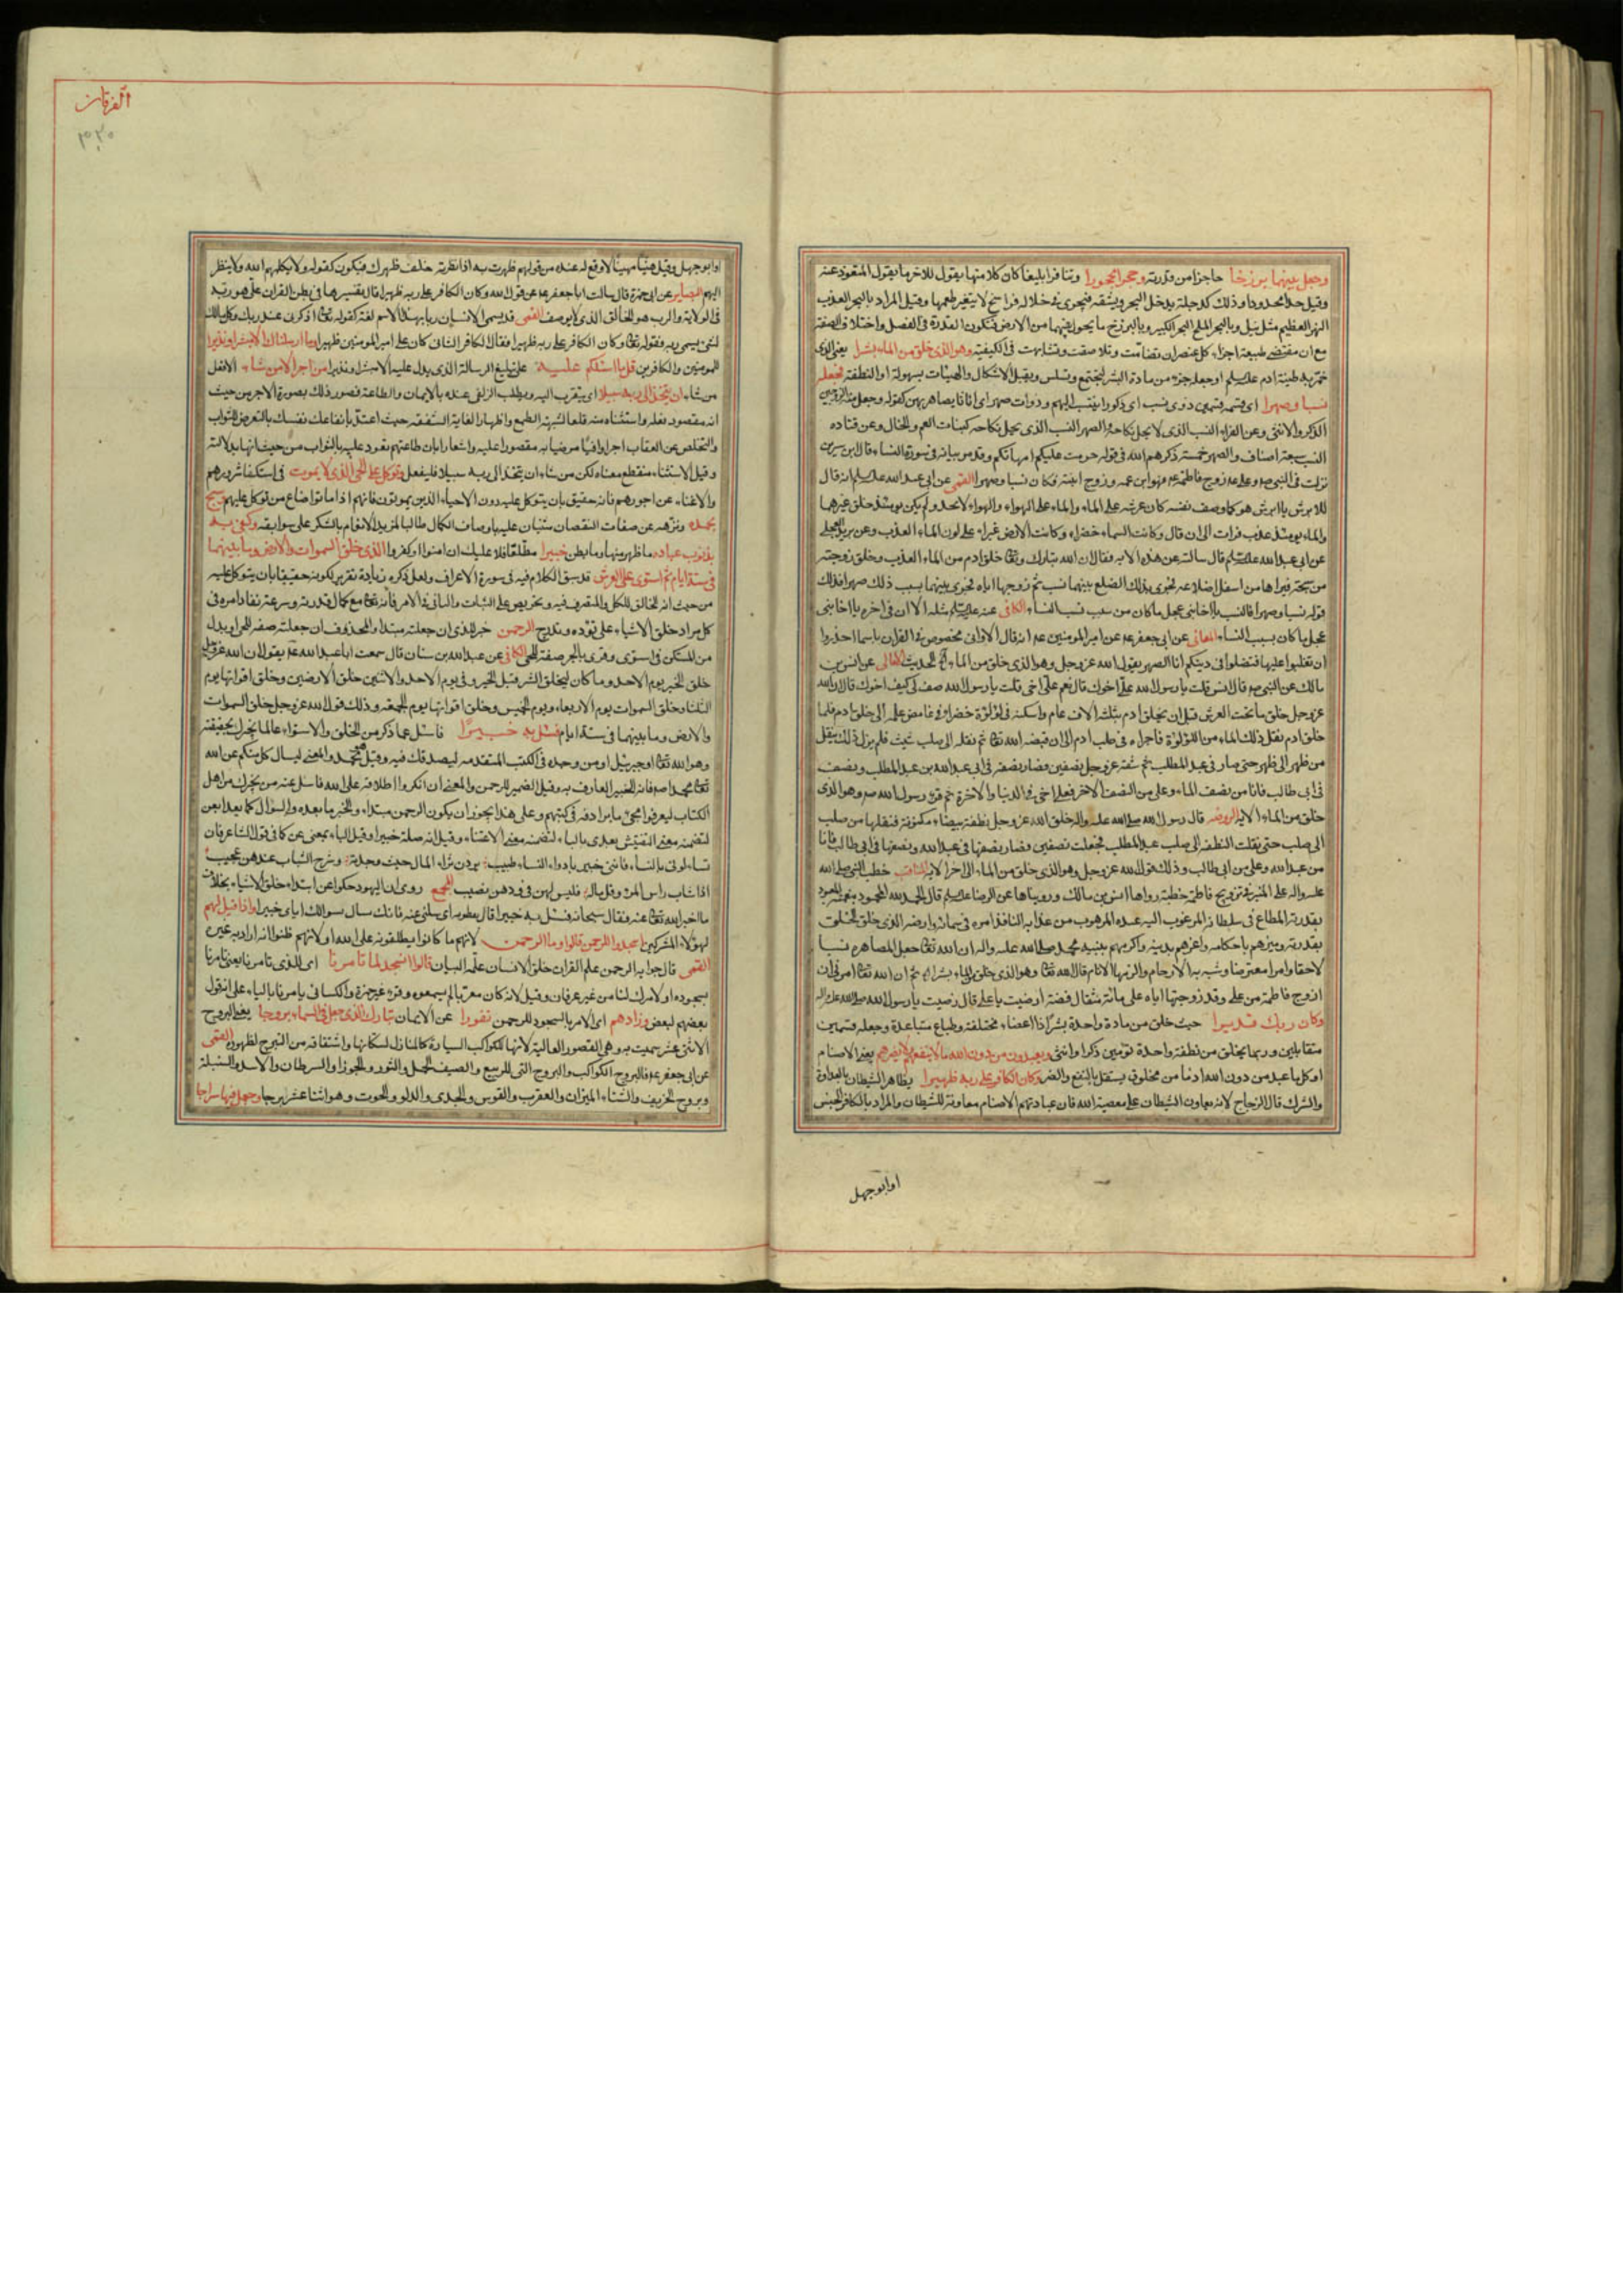 الفرقان
وجعل بينهما برزخا حاجزا من قدرته وحجرا محجورا وتنافرا بليغا كان كلا منهما يقول للاخر ما يقول المتعوذ عنه
وقيل حدا محدودا وذلك كدجلة يدخل البحر ويشقه فيجري في خلاله فراسخ لا يتغير طعمها وقيل المراد بالبحر العذب
النهر العظيم مثل نيل وبالبحر الملح البحر الكبير وبالبرزخ ما يحول بينهما من الارض فتكون القدرة في الفصل واختلاف الصفة
مع ان مقتضى طبيعة اجزاء كل عنصر ان تضامت وتلاصقت وتشابهت في الكيفية وهو الذي خلق من الماء بشرا يعني الذي
خمر به طينة ادم عليه السلم او جعله جزء من مادة البشر ليجتمع ويسلس ويقبل الاشكال والهيئات بسهولة او النطفة فجعله
نسبا وصهرا اي قسمه قسمين ذوي نسب اي ذكورا ينتسب اليهم وذوات صهر اي اناثا يصاهر بهن كقوله وجعل منه الزوجين
الذكر والانثى وعن الفراء النسب الذي لا يحل نكاحه والصهر النسب الذي يحل نكاحه كبنات العم والخال وعن قتادة
النسب سبعة اصناف والصهر خمسة ذكرهم الله في قوله حرمت عليكم امهاتكم وقد مر بيانه في سورة النساء وقال ابن سيرين
نزلت في النبي ص وعلي ع زوج فاطمة ع فهو ابن عمه وزوج ابنته فكان نسبا وصهرا القمي عن ابي عبد الله عليه السلم انه قال
للابرش يا ابرش هو كما وصف نفسه كان عرشه على الماء والماء على الهواء والهواء لا يحد ولم يكن يومئذ خلق غيرهما
والماء يومئذ عذب فرات الى ان قال وكانت السماء خضراء وكانت الارض غبراء على لون الماء العذب وعن بريد العجلي
عن ابي عبد الله عليه السلم قال سالته عن هذه الاية فقال ان الله تبارك وتعالى خلق ادم من الماء العذب وخلق زوجته
من سنخه فبراها من اسفل اضلاعه فجرى بذلك الضلع بينهما نسب ثم زوجها اياه فجرى بينهما بسبب ذلك صهر فذلك
قوله نسبا وصهرا فالنسب يا اخا بني عجل ما كان من سبب نساء الكافي عنه عليه السلم مثله الا ان في اخره يا اخا بني
عجل ما كان بسبب النساء المعاني عن ابي جعفر ع عن امير المؤمنين ع انه قال الا واني مخصوص في القران باسماء احذروا
ان تغلبوا عليها فتضلوا في دينكم انا الصهر يقول الله عز وجل وهو الذي خلق من الماء الحديث الامالي عن انس بن
مالك عن النبي ص قال انس قلت يا رسول الله علي اخوك قال نعم علي اخي قلت يا رسول الله صف لي كيف اخوك قال ان الله
عز وجل خلق ماء تحت العرش قبل ان يخلق ادم بثلثة الاف عام واسكنه في لؤلؤة خضراء في غامض علمه الى خلق ادم فلما
خلق ادم نقل ذلك الماء من اللؤلؤة فاجراه في صلب ادم الى ان قبضه الله تعالى ثم نقله الى صلب شيث فلم يزل ذلك ينقل
من ظهر الى ظهر حتى صار في عبد المطلب ثم شقه عز وجل نصفين فصار نصفه في ابي عبد الله بن عبد المطلب ونصف
في ابي طالب فانا من نصف الماء وعلي من النصف الاخر فعلي اخي في الدنيا والاخرة ثم قرء رسول الله ص وهو الذي
خلق من الماء الاية الروضه قال رسول الله صلى الله عليه واله خلق الله عز وجل نطفة بيضاء مكنونة فنقلها من صلب
الى صلب حتى نقلت النطفة الى صلب عبد المطلب فجعلت نصفين فصار نصفها في عبد الله ونصفها في ابي طالب فانا
من عبد الله وعلي من ابي طالب وذلك قول الله عز وجل وهو الذي خلق من الماء الى اخر الاية المناقب خطب النبي صلى الله
عليه واله على المنبر في تزويج فاطمة خطبة رواها انس بن مالك ورويناها عن الرضا عليه السلم قال الحمد لله المحمود بنعمته المعبود
بقدرته المطاع في سلطانه المرغوب اليه عنده المرهوب من عذابه النافذ امره في سمائه وارضه الذي خلق الخلق
بقدرته وميزهم باحكامه واعزهم بدينه واكرمهم بنبيه محمد صلى الله عليه واله ان الله تعالى جعل المصاهرة نسبا
لاحقا وامرا معترضا وشبه به الارحام والزمها الانام قال الله تعالى وهو الذي خلق من الماء بشرا الاية ثم ان الله تعالى امرني ان
ازوج فاطمة من علي وقد زوجتها اياه على مائة مثقال فضة ارضيت يا علي قال رضيت يا رسول الله صلى الله عليه واله
وكان ربك قديرا حيث خلق من مادة واحدة بشرا ذا اعضاء مختلفة وطباع متباعدة وجعله قسمين
متقابلين وربما يخلق من نطفة واحدة توءمين ذكرا وانثى ويعبدون من دون الله ما لا ينفعهم ولا يضرهم يعني الاصنام
او كل ما عبد من دون الله اذ ما من مخلوق يستقل بالنفع والضر وكان الكافر على ربه ظهيرا يظاهر الشيطان بالعداوة
والشرك قال الزجاج لانه يعاون الشيطان على معصية الله فان عبادتهم الاصنام معاونة للشيطان والمراد بالكافر الجنس
او ابو جهل
او ابو جهل وقيل هينا مهينا لا وقع له عنده من قولهم ظهرت به اذا نظرته خلف ظهرك فيكون كقوله ولا يكلمهم الله ولا ينظر
اليهم البصاير عن ابي حمزة قال سالت ابا جعفر ع عن قول الله وكان الكافر على ربه ظهيرا قال تفسيرها في بطن القران علي هو ربه
في الولاية والرب هو الخالق الذي لا يوصف القمي قد يسمى الانسان ربا بهذا الاسم لغة كقوله تعالى اذكرني عند ربك وكل مالك
لشئ يسمى ربه فقوله تعالى وكان الكافر على ربه ظهيرا فقال الكافر الثاني كان على امير المؤمنين ظهيرا وما ارسلناك الا مبشرا ونذيرا
للمومنين والكافرين قل ما اسئلكم عليه على تبليغ الرسالة الذي يدل عليه الا مبشرا ونذيرا من اجر الا من شاء الا فعل
من شاء ان يتخذ الى ربه سبيلا اي يتقرب اليه ويطلب الزلفى عنده بالايمان والطاعة فصور ذلك بصورة الاجر من حيث
انه مقصود فعله واستثناه منه قلعا لشبهة الطمع واظهارا لغاية الشفقة حيث اعتد بانفاعك نفسك بالتعرض للثواب
والتخلص عن العقاب اجرا وافيا مرضيا به مقصورا عليه واشعارا بان طاعتهم تعود عليه بالثواب من حيث انها بدلالته
وقيل الاستثناء منقطع معناه لكن من شاء ان يتخذ الى ربه سبيلا فليفعل وتوكل على الحي الذي لا يموت في استكفاء شرورهم
والاغناء عن اجورهم فانه حقيق بان يتوكل عليه دون الاحياء الذين يموتون فانهم اذا ماتوا ضاع من توكل عليهم وسبح
بحمده ونزهه عن صفات النقصان مثنيا عليه باوصاف الكمال طالبا لمزيد الانعام بالشكر على سوابقه وكفى به
بذنوب عباده ما ظهر منها وما بطن خبيرا مطلعا فلا عليك ان امنوا او كفروا الذي خلق السموات والارض وما بينهما
في ستة ايام ثم استوى على العرش قد سبق الكلام فيه في سورة الاعراف ولعل ذكره زيادة تقرير لكونه حقيقا بان يتوكل عليه
من حيث انه الخالق للكل والمتصرف فيه وتحريص على الثبات والتاني في الامر فانه تعالى مع كمال قدرته وسرعة نفاذ امره في
كل مراد خلق الاشياء على تؤدة وتدرج الرحمن خبر الذي ان جعلته مبتدا ولمحذوف ان جعلته صفة للحي او بدل
من المستكن في استوى وقرئ بالجر صفة للحي الكافي عن عبد الله بن سنان قال سمعت ابا عبد الله ع يقول ان الله عز وجل
خلق الخير يوم الاحد وما كان ليخلق الشر قبل الخير وفي يوم الاحد والاثنين خلق الارضين وخلق اقواتها يوم
الثلثا وخلق السموات يوم الاربعاء ويوم الخميس وخلق اقواتها يوم الجمعة وذلك قول الله عز وجل خلق السموات
والارض وما بينهما في ستة ايام فسئل به خبيرا فاسئل عما ذكر من الخلق والاستواء عالما يخبرك بحقيقته
وهو الله تعالى او جبرئيل او من وجده في الكتب المتقدمة ليصدقك فيه وقيل محمد والمعنى ليسال كل متكلم عن الله
تعالى محمدا ص فانه الخبير العارف به وقيل الضمير للرحمن والمعنى ان انكروا اطلاقه على الله فاسئل عنه من يخبرك من اهل
الكتاب ليعرفوا مجئ ما يرادفه في كتبهم وعلى هذا يجوز ان يكون الرحمن مبتداء والخبر ما بعده والسؤال كما يعدى بعن
لتضمنه معنى التفتيش يعدى بالباء لتضمنه معنى الاعتناء وقيل انه صلة خبيرا وقيل الباء بمعنى عن كما في قول الشاعر فان
تسالوني بالنساء فانني خبير بادواء النساء طبيب يردن ثراء المال حيث وجدنه وشرخ الشباب عندهن عجيب
اذا شاب راس المرء وقل ماله فليس لهن في ودهن نصيب المجمع روي ان اليهود حكوا عن ابتداء خلق الاشياء بخلاف
ما اخبر الله تعالى عنه فقال سبحانه فسئل به خبيرا واذا قيل لهم
لهؤلاء المشركين اسجدوا للرحمن قالوا وما الرحمن لانهم ما كانوا يطلقونه على الله او لانهم ظنوا انه اراد به غيره
القمي قال جوابه الرحمن علم القران خلق الانسان علمه البيان قالوا انسجد لما تامرنا اي للذي تامرنا يعني تامرنا
بسجوده او لامرك لنا من غير عرفان وقيل لانه كان معربا لم يسمعوه وقرء غير حمزة والكسائي يامرنا بالياء على انه قول
بعضهم لبعض وزادهم اي الامر بالسجود للرحمن نفورا عن الايمان تبارك الذي جعل في السماء بروجا يعني البروج
الاثنى عشر سميت به وهي القصور العالية لانها للكواكب السيارة كالمنازل لسكانها واشتقاقه من التبرج لظهوره القمي
عن ابي جعفر ع فالبروج الكواكب والبروج التي للربيع والصيف الحمل والثور والجوزا والسرطان والاسد والسنبلة
وبروج الخريف والشتاء الميزان والعقرب والقوس والجدي والدلو والحوت وهو اثنا عشر برجا وجعل فيها سراجا